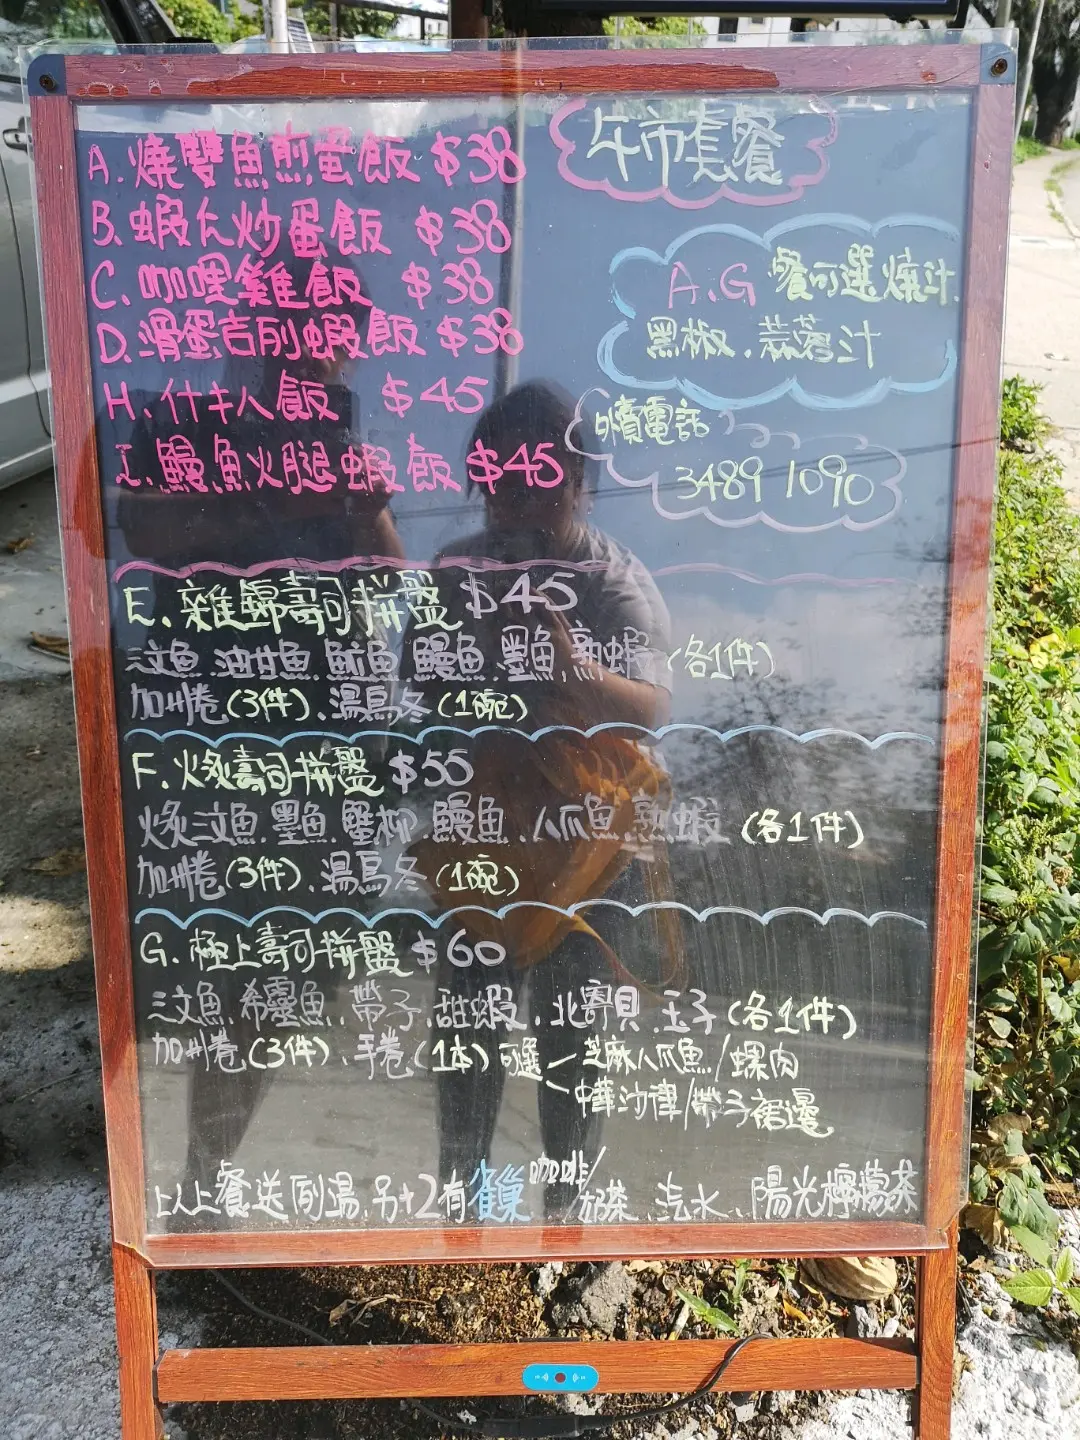 午市套餐
A. 燒雙魚煎蛋飯 $38
B. 蝦仁炒蛋飯 $38
C. 咖哩雞飯 $38
D. 滑蛋吉列蝦飯 $38
H. 什扒飯 $45
I. 鰻魚火腿蝦飯 $45
A.G 餐可選燒汁.
黑椒.蒜蓉汁
外賣電話
3489 1090
E. 雜錦壽司拼盤 $45
三文魚.油甘魚.魷魚.鰻魚.墨魚.熟蝦 (各1件)
加州卷 (3件)、湯烏冬 (1碗)
F. 火炙壽司拼盤 $55
火炙三文魚.墨魚.蟹柳.鰻魚.八爪魚.熟蝦 (各1件)
加州卷 (3件)、湯烏冬 (1碗)
G. 極上壽司拼盤 $60
三文魚.希靈魚.帶子.甜蝦.北寄貝.玉子 (各1件)
加州卷 (3件)、手卷 (1本) 可選 芝麻八爪魚/螺肉
中華沙律/帶子裙邊
以上餐送例湯.另+2有雀巢咖啡/奶茶、汽水、陽光檸檬茶